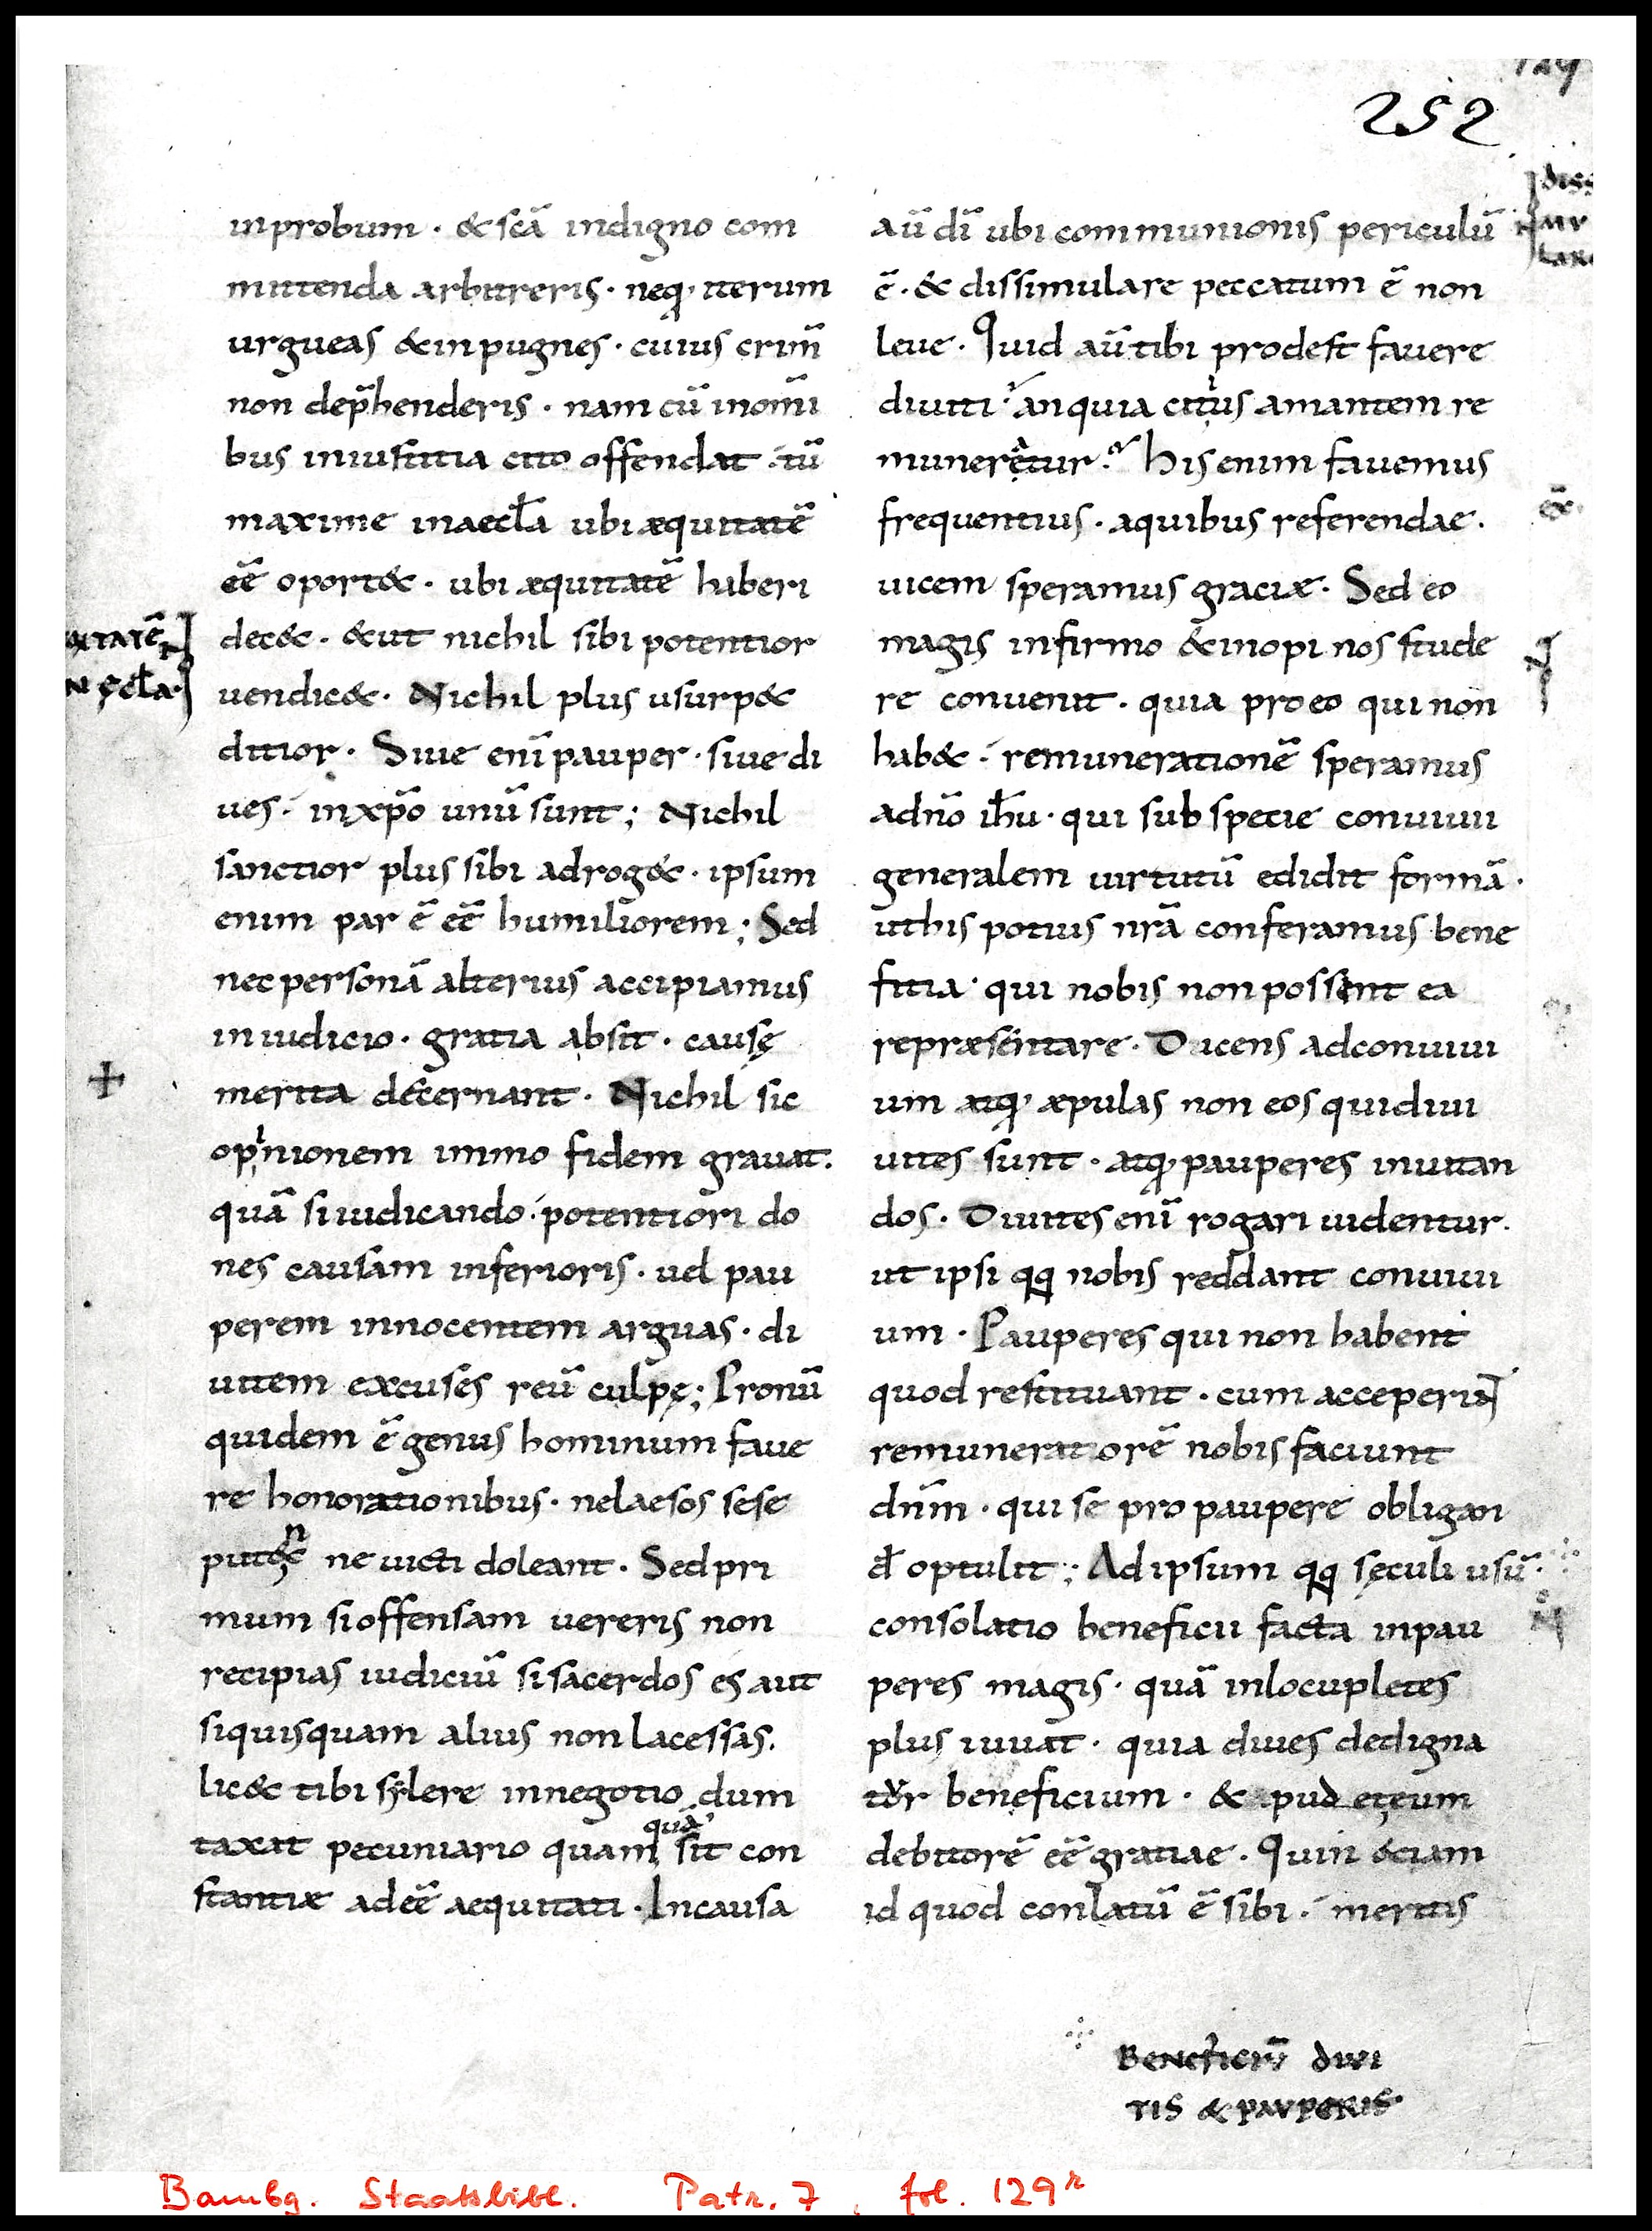 129
252
inprobum · & scā indigno com
mittenda arbitreris · neq; iterum
urgueas & inpugnes · cuius crim̄
non depͬhenderis · nam cū inom̄i
bus iniustitia cito offendat · tū
maxime inaeccła ubi æquitatē
eē oport& · ubi æquitatē haberi
dec& · & ut nichil sibi potentior
uendic& · Nichil plus usurp&
ditior · Siue enī pauper · siue di
ues · in xp̄o unū sunt ; Nichil
sanctior plus sibi adrog& · ipsum
enim par ē eē humiliorem ; Sed
nec personā alterius accipiamus
iniudicio · gratia absit · causę
merita decernant · Nichil sic
opinionem immo fidem grauat ·
quā si iudicando · potentiori do
nes causam inferioris · uel pau
perem innocentem arguas · di
uitem excuses reū culpę ; Pronū
quidem ē genus hominum faue
re honorationibus · nelaesos sese
put&n ne uicti doleant · Sed pri
mum si offensam uereris non
recipias iudiciū si sacerdos es aut
siquisquam alius non lacessas ·
lic& tibi sylere innegotio dum
taxat pecuniario quam quā sit con
stantiæ adeē aequitati · Incausa
itatē
n ęccła ·
aū dī ubi communionis periculū
ē · & dissimulare peccatum ē non
leue · Quid aū tibi prodest fauere
diuiti · an quia citius amantem re
muneretur · his enim fauemus
frequentius · aquibus referendae ·
uicem speramus graciæ · Sed eo
magis infirmo & inopi nos stude
re conuenit · quia pro eo qui non
hab& · remunerationē speramus
adn̄o ih̄u · qui sub specie conuiuii
generalem uirtutū edidit formā ·
ut his potius nr̄a conferamus bene
fitia · qui nobis non possent ea
repræsentare · Dicens adconuiui
um atq; æpulas non eos qui diui
uites sunt · atq; pauperes inuitan
dos · Diuites enī rogari uidentur ·
ut ipsi qq; nobis reddant conuiui
um · Pauperes qui non habent
quod restituant · cum acceperint
remuneratorē nobis faciunt
dn̄m · qui se pro paupere obligan
đ optulit ; Ad ipsum qq; sęculi usū ·
consolatio beneficii facta inpau
peres magis · quā inlocupletes
plus iuuat · quia diues dedigna
tur beneficium · & pud et eum
debitorē eē gratiae · Quin &iam
id quod conlatū ē sibi · meritis
diss
mu
lare
Beneficiū divi
tis & pauperis ·
Bambg. Staatsbibl. Patr. 7, fol. 129r